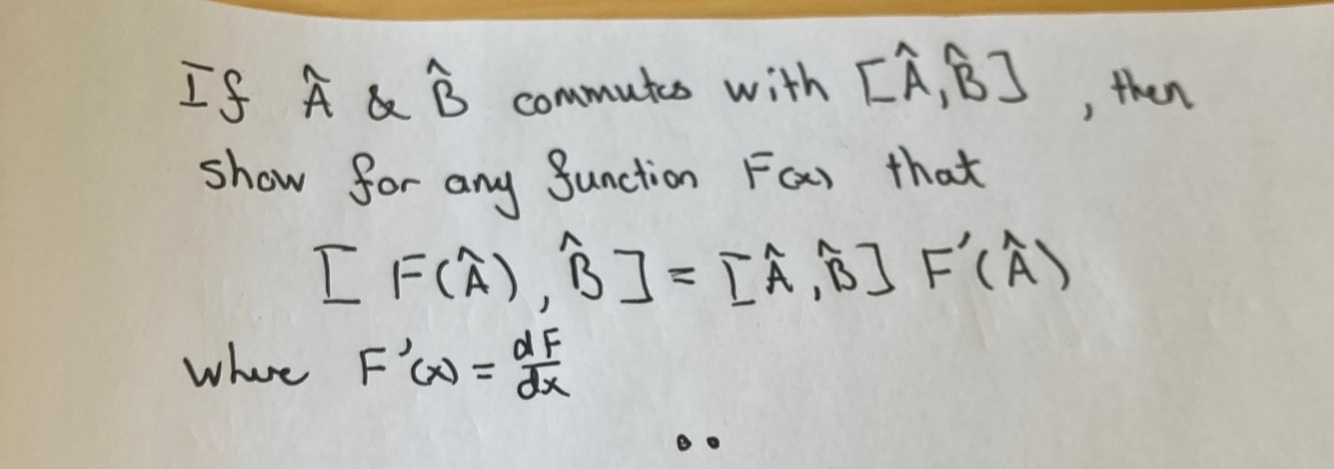 If Â & B̂ commutes with [Â,B̂] , then
show for any function F(x) that
[ F(Â) , B̂ ] = [Â ,B̂] F′(Â)
where F′(x) = dF/dx